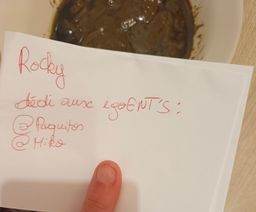 Rocky
dédi aux egoENT'S :
@Paquitos
@Hiro